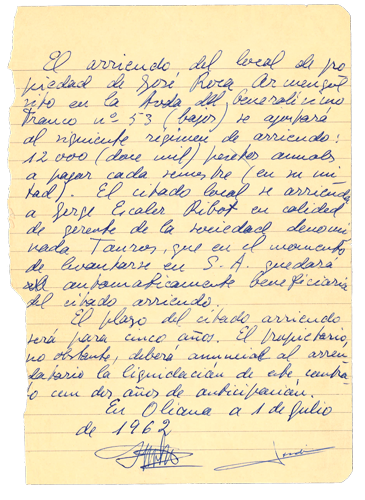 El arriendo del local de pro
piedad de José Roca Armengol
sito en la Avda del Generalísimo
Franco nº 53 (bajos) se ajustará
al siguiente régimen de arriendo:
12.000 (doce mil) pesetas anuales
a pagar cada semestre (en su mi
tad). El citado local se arrienda
a Jorge Escaler Ribot en calidad
de gerente de la sociedad denomi
nada Taurus, que en el momento
de levantarse en S.A. quedará
automáticamente beneficiaria
del citado arriendo.
El plazo del citado arriendo
será para cinco años. El propietario,
no obstante, deberá anunciar al arren
datario la liquidación de este contra
to con dos años de anticipación.
En Oliana a 1 de julio
de 1962